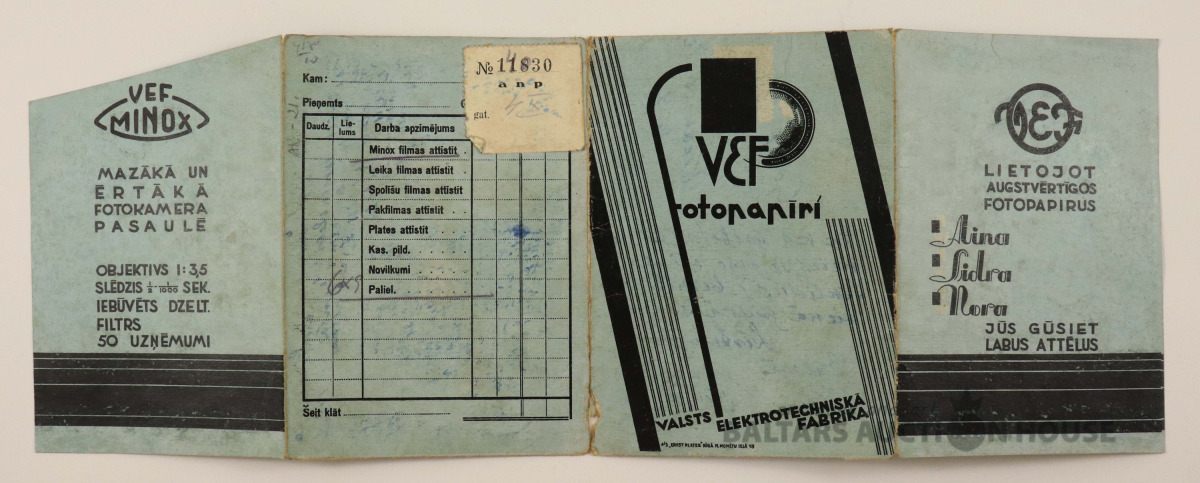 VEF
MINOX
MAZĀKĀ UN
ĒRTĀKĀ
FOTOKAMERA
PASAULĒ
OBJEKTIVS 1:3,5
SLĒDZIS ½-1/1000 SEK.
IEBŪVĒTS DZELT.
FILTRS
50 UZŅĒMUMI
Kam:
Pieņemts
№ 11830
anp
gut.
Daudz. Lielums Darba apzimējums
Minox filmas attīstīt
Leika filmas attīstīt
Spolīšu filmas attīstīt
Pakfilmas attīstīt
Plates attīstīt
Kas. pild.
Novilkumi
6x9
Paliel.
Šeit klāt
VEF
fotopapīri
VALSTS ELEKTROTECHNISKĀ
FABRIKA
A/S „ERNST PLATES" RĪGĀ
VEF
LIETOJOT
AUGSTVĒRTĪGOS
FOTOPAPIRUS
Aina
Sidra
Nora
JŪS GŪSIET
LABUS ATTĒLUS
BALTARS AUCTION HOUSE